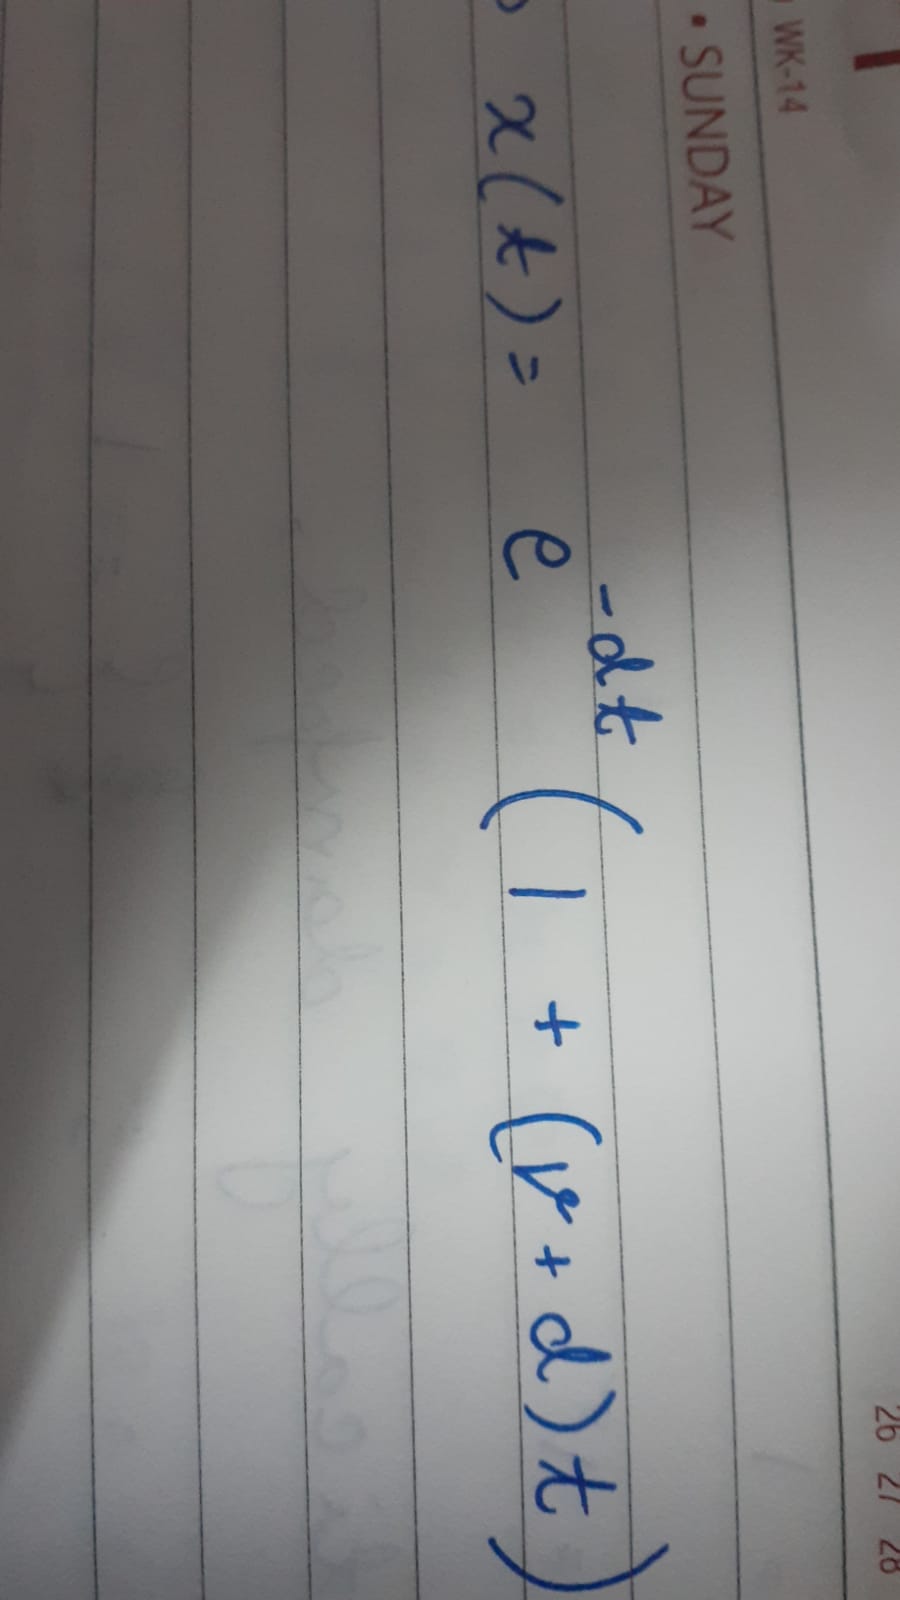 26 27 28
WK-14
• SUNDAY
x(t) = e^{-dt} (1 + (v + d)t)